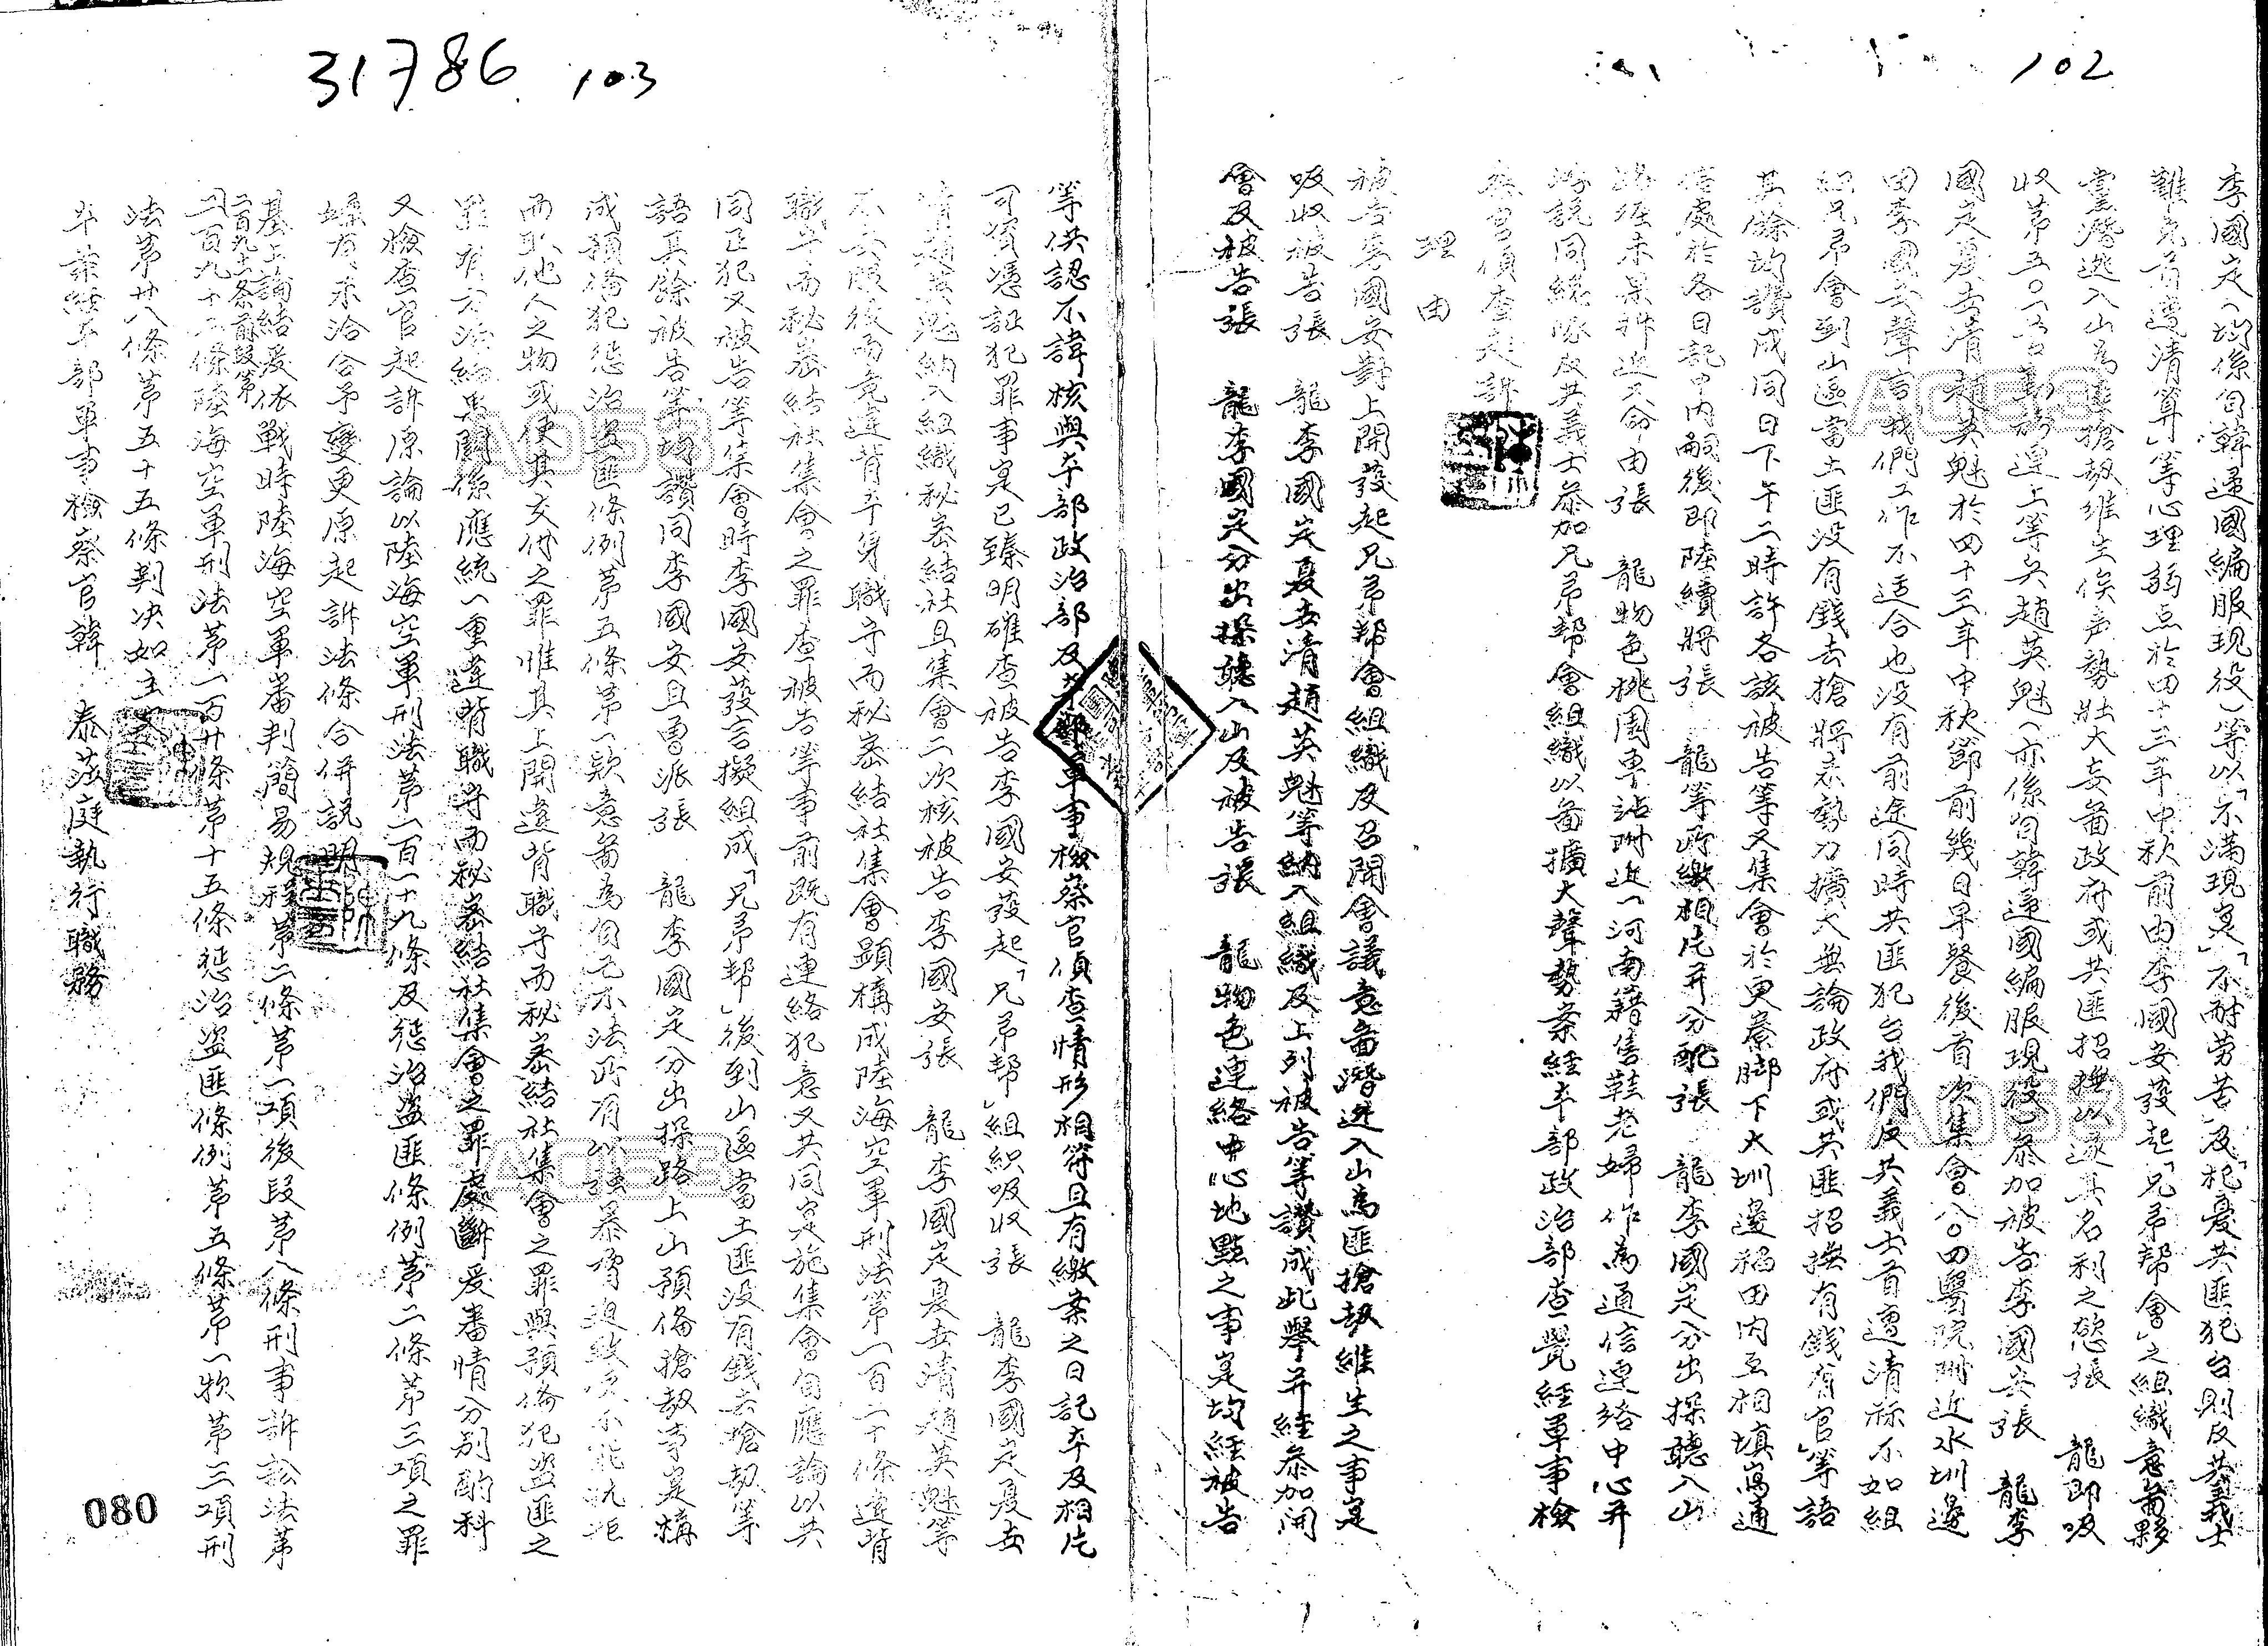 102
李國定（均係自韓遞國編服現役）等以「不滿現実」「不耐劳苦」及「耽憂共匪犯台則反共義士
難免首遭清算」等心理弱点於四十三年中秋前由李國安發起「兄弟幇會」之組織意圖夥
黨潛逃入山為匪搶劫維生俟声勢壯大妄圖政府或共匪招撫以遂其名利之慾張　龍即吸
收第五〇一
上等兵趙英魁（亦係自韓遞國編服現役）參加被告李國安張　龍李
國定夏去清趙英魁於四十三年中秋節前幾日早餐後首次集會八〇四醫院附近水圳邊
田李國安聲言我們工作不适合也没有前途同時共匪犯台我們反共義士首遭清祘不如組
織兄弟會到山區當土匪没有錢去搶將來勢力擴大無論政府或共匪招撫有錢有官」等語
其餘均讚成同日下午二時許各該被告等又集會於更寮脚下大圳邊稻田内互相填寫通
信處於各日記中内嗣後即陸續將張　龍等所繳相片并分配張　龍李國定分出探聽入山
路徑未果
又命由張　龍物色桃園車站附近（河南籍售鞋老婦作為通信連絡中心并
游說同總隊反共義士參加兄弟幇會組織以圖擴大聲勢案經本部政治部查覺經軍事檢
察官偵查起訴
理　由
被告李國安對上開發起兄弟幇會組織及召開會議意圖潛逃入山為匪搶劫維生之事実
吸收被告張　龍李國定夏去清趙英魁等納入組織及上列被告等讚成此舉并經參加開
會及被告張　龍李國定分出探聽入山及被告張　龍物色連絡中心地點之事実均経被告
31786　103
等供認不諱核與本部政治部及本部軍事檢察官偵查情形相符且有繳案之日記本及相片
可資憑証犯罪事実已臻明確查被告李國安發起「兄弟幇」組织吸收張　龍李國定夏去
清趙英魁納入組織秘密結社且集會二次核被告李國安張　龍李國定夏去清趙英魁等
不
服役而竟違背本身職守而秘密結社集會顕構成陸海空軍刑法第一百二十條違背
職守而秘密結社集會之罪查被告等事前既有連絡犯意又共同実施集會自應論以共
同正犯又被告等集會時李國安發言擬組成「兄弟幇」後到山區當土匪没有錢去搶劫等
語其餘被告等均讚同李國安且曾派張　龍李國定分出探路上山預俻搶劫事実構
成預俻犯惩治盜匪條例第五條第一款意圖為自己不法所有以強暴脅迫致使不能抗拒
而取他人之物或使其交付之罪惟其上開違背職守而秘密結社集會之罪與預俻犯盜匪之
罪有方法結果関係應統一重違背職守而秘密結社集會之罪處斷爰審情分別酌科
又檢查官起訴原論以陸海空軍刑法第一百一十九條及惩治盜匪條例第二條第三項之罪
嫌有未洽合予變更原起訴法條合併説明
基上論結爰依戰時陸海空軍審判簡易規程第二條第一項後段第八條刑事訴訟法第
二百九十一條前段第
二百九十二條陸海空軍刑法第一百廿條第十五條惩治盜匪條例第五條第一款第三項刑
法第廿八條第五十五條判决如主文
本案經本部軍事檢察官韓　泰
庭執行職務
080
A053
A053
A053
A053